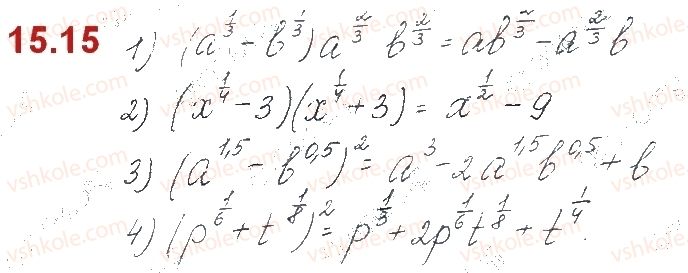 15.15
1) (a^{1/3} - b^{1/3}) a^{2/3} b^{2/3} = ab^{2/3} - a^{2/3}b
2) (x^{1/4} - 3)(x^{1/4} + 3) = x^{1/2} - 9
3) (a^{1,5} - b^{0,5})^2 = a^3 - 2a^{1,5}b^{0,5} + b
4) (p^{1/6} + t^{1/8})^2 = p^{1/3} + 2p^{1/6}t^{1/8} + t^{1/4}.
vshkole.com